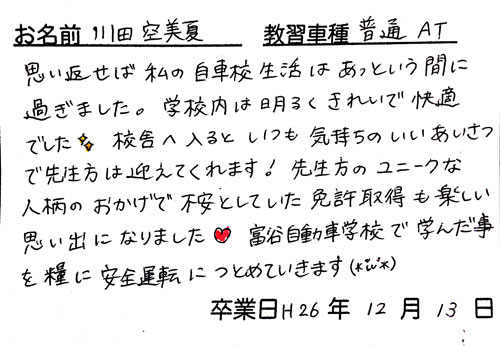 お名前 川田 空美夏 教習車種 普通 AT
思い返せば 私の 自車校 生活は あっという間に
過ぎました。 学校内は 明るく きれいで 快適
でした✨ 校舎へ 入ると いつも 気持ちの いい あいさつ
で 先生方は 迎えてくれます! 先生方の ユニークな
人柄の おかげで 不安としていた 免許取得も 楽しい
思い出に なりました❤ 富谷自動車学校で 学んだ事
を 糧に 安全運転に つとめていきます(*´ω`*)
卒業日 H26 年 12 月 13 日